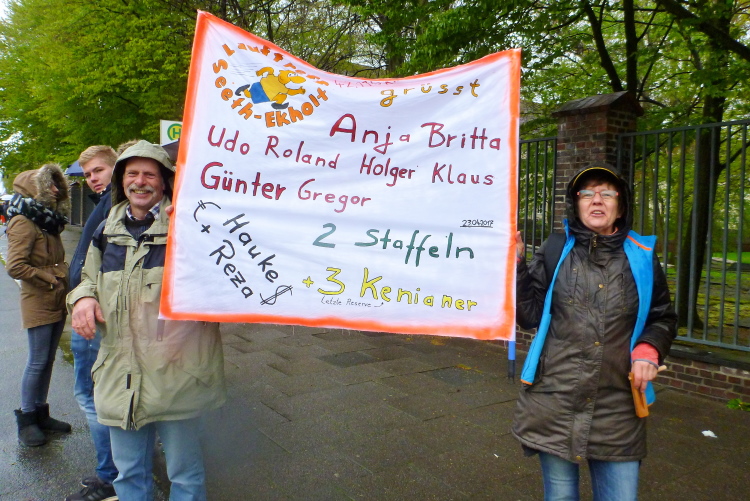 Lauftreff
Seeth-Ekholt
grüsst
Anja Britta
Udo Roland Holger Klaus
Günter Gregor
23.04.2017
2 Staffeln
(Hauke
+ Reza)
+ 3 Kenianer
Letzte Reserve
H